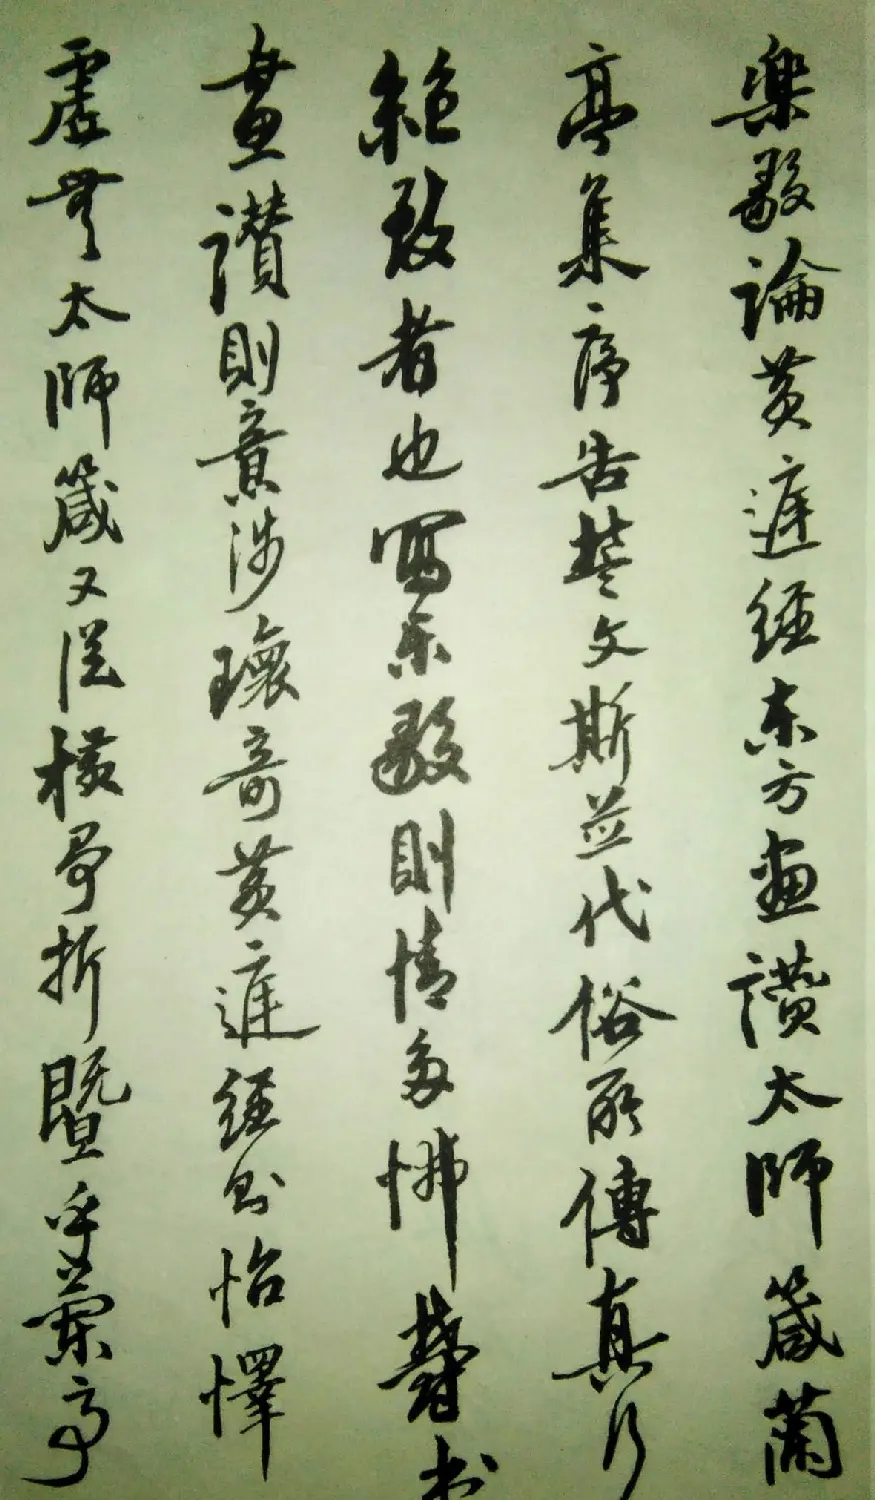 樂毅論黃庭經東方畫讚太師箴蘭
亭集序告誓文斯並代俗所傳真行
絕致者也寫樂毅則情多怫鬱書
畫讚則意涉瓌奇黃庭經則怡懌
虛無太師箴又從橫爭折暨乎蘭亭